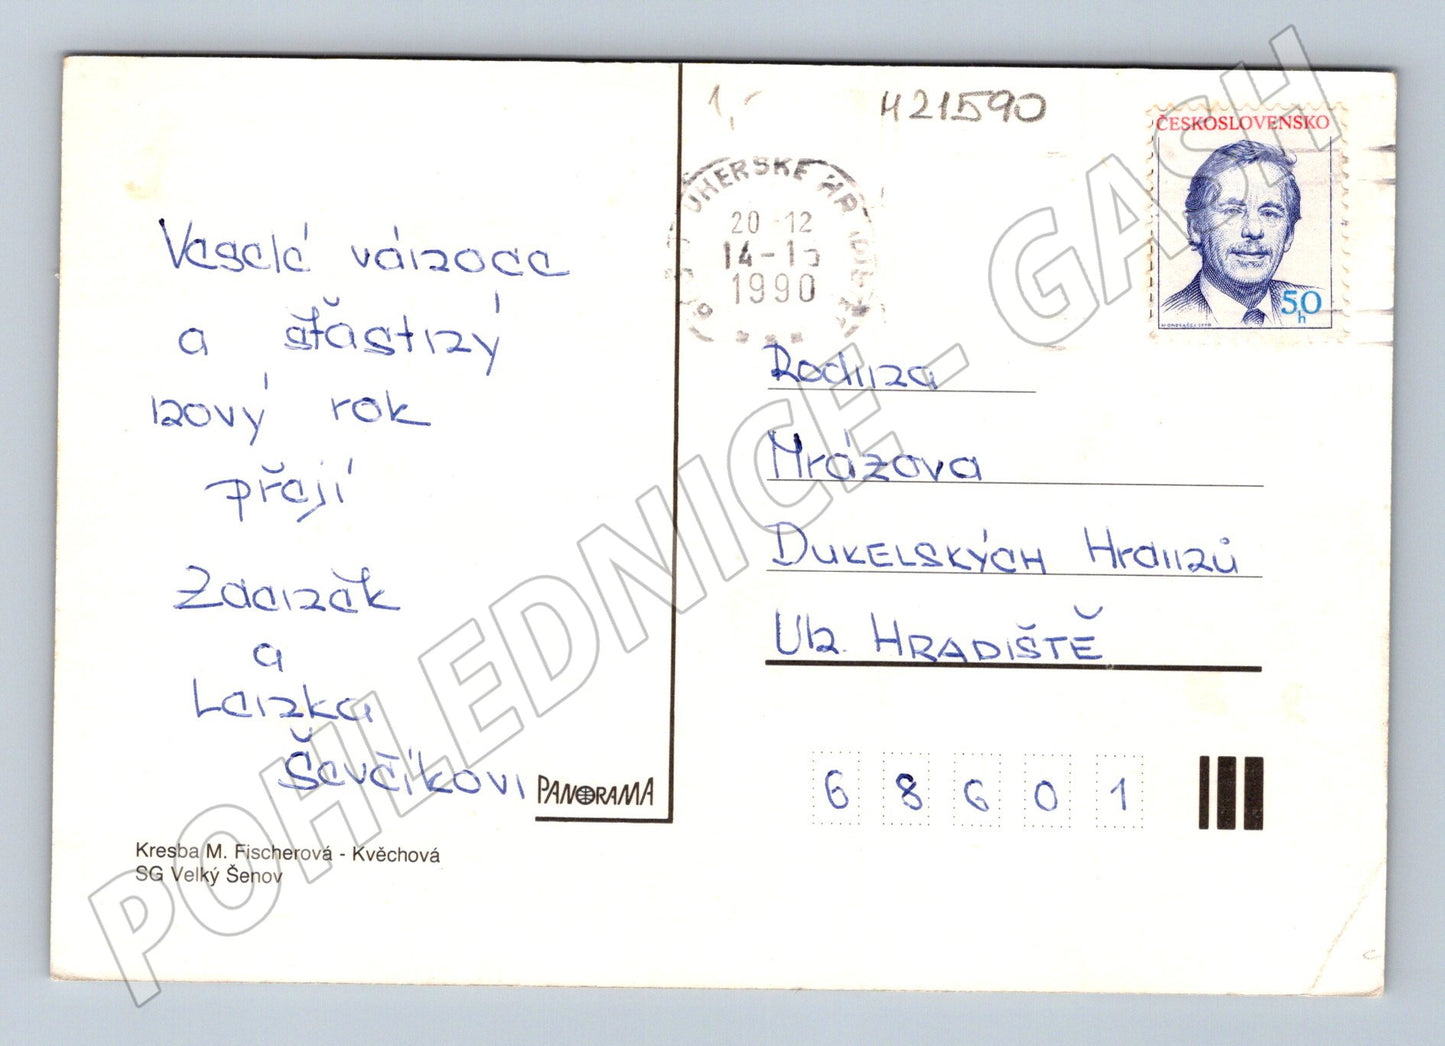 Veselé vánoce
a šťastný
nový rok
přejí
Zdeněk
a
Lenka
Ševčíkovi
PANORAMA
Kresba M. Fischerová - Kvěchová
SG Velký Šenov
H21590
UHERSKÉ HR
20 -12
14-15
1990
ČESKOSLOVENSKO
50
h
Rodina
Mrázova
DUKELSKÝCH Hrdinů
Uh. HRADIŠTĚ
68601
POHLEDNICE - GASH